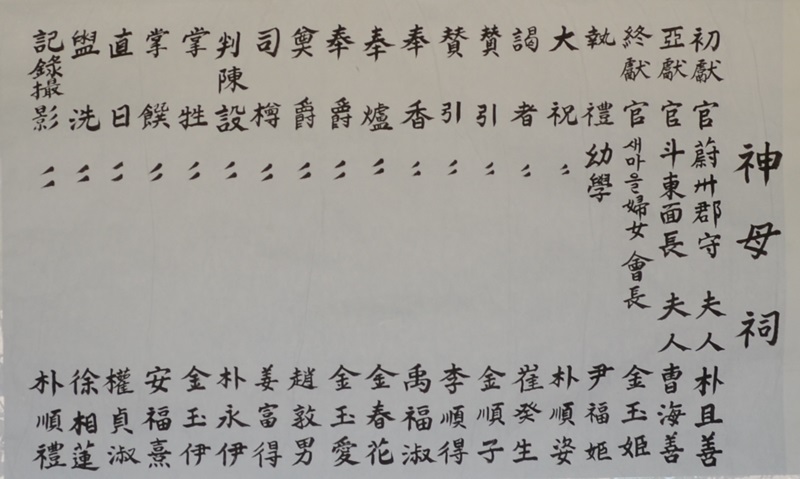 神母祠
初獻官 蔚州郡守 夫人 朴且善
亞獻官 斗東面長 夫人 曹海善
終獻官 새마을婦女會長 金玉姫
執禮 幼學 尹福姫
大祝 〃 朴順姿
謁者 〃 崔癸生
贊引 〃 金順子
贊引 〃 李順得
奉香 〃 禹福淑
奉爐 〃 金春花
奉爵 〃 金玉愛
奠爵 〃 趙敦男
司樽 〃 姜富得
判陳設 〃 朴永伊
掌牲 〃 金玉伊
掌饌 〃 安福熹
直日 〃 權貞淑
盥洗 〃 徐相蓮
記錄撮影 〃 朴順禮